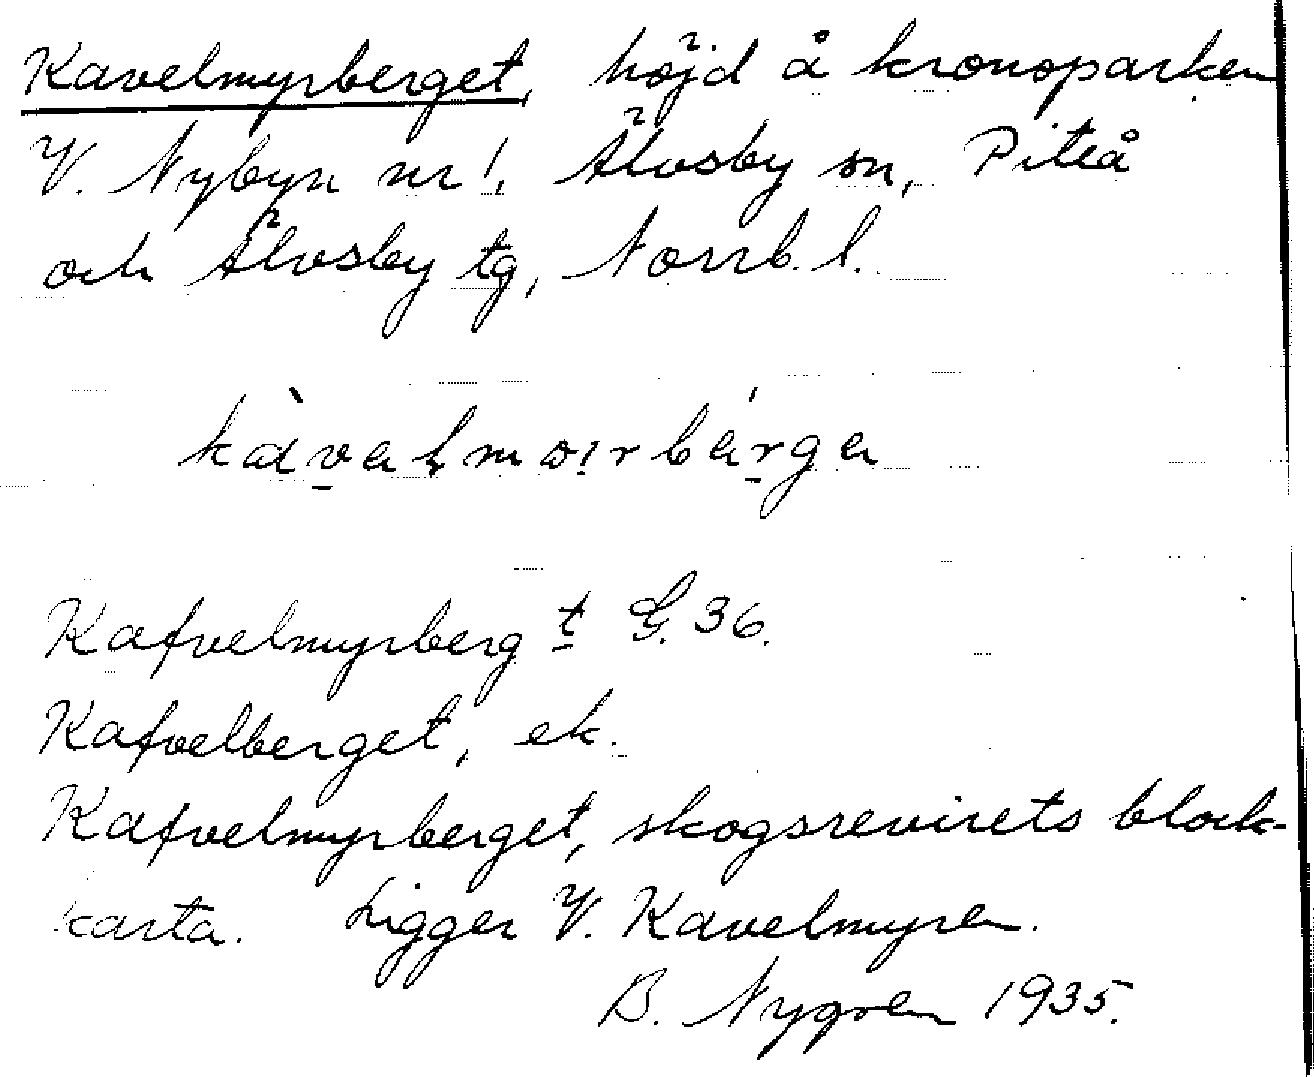 Kavelmyrberget, höjd å kronoparken
V. Nybyn nr 1, Älvsby sn, Piteå
och Älvsby tg, Norrb. l.
Kafvelmyrberg t G. 36.
Kafvelberget, ek.
Kafvelmyrberget, skogsrevirets block-
karta. Ligger V. Kavelmyren.
B. Nygren 1935.